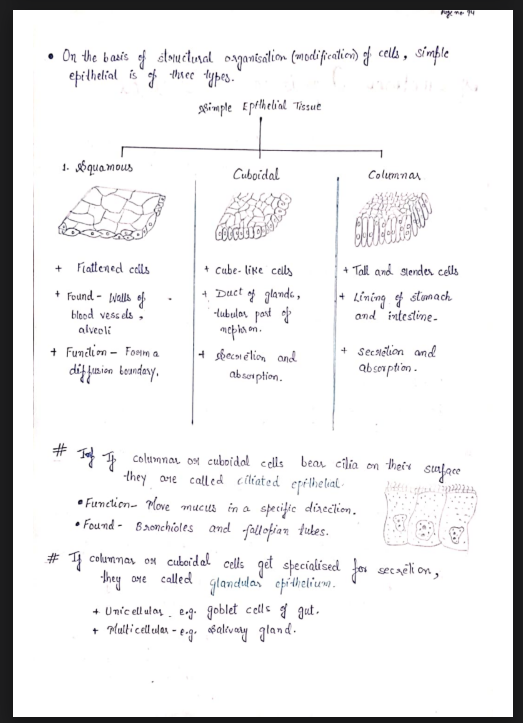 Page no 94
• On the basis of structural organisation (modification) of cells, simple
epithelial is of three types.
Simple Epithelial Tissue
1. Squamous
+ Flattened cells
+ Found - Walls of
blood vessels,
alveoli
+ Function - Form a
diffusion boundary.
Cuboidal
+ Cube-like cells
+ Duct of glands,
tubular part of
nephron.
+ Secretion and
absorption.
Columnar
+ Tall and slender cells
+ Lining of stomach
and intestine.
+ Secretion and
absorption.
# If columnar or cuboidal cells bear cilia on their surface
they are called ciliated epithelial.
• Function - Move mucus in a specific direction.
• Found - Bronchioles and fallopian tubes.
# If columnar or cuboidal cells get specialised for secretion,
they are called glandular epithelium.
+ Unicellular - e.g. goblet cells of gut.
+ Multicellular - e.g. Salivary gland.